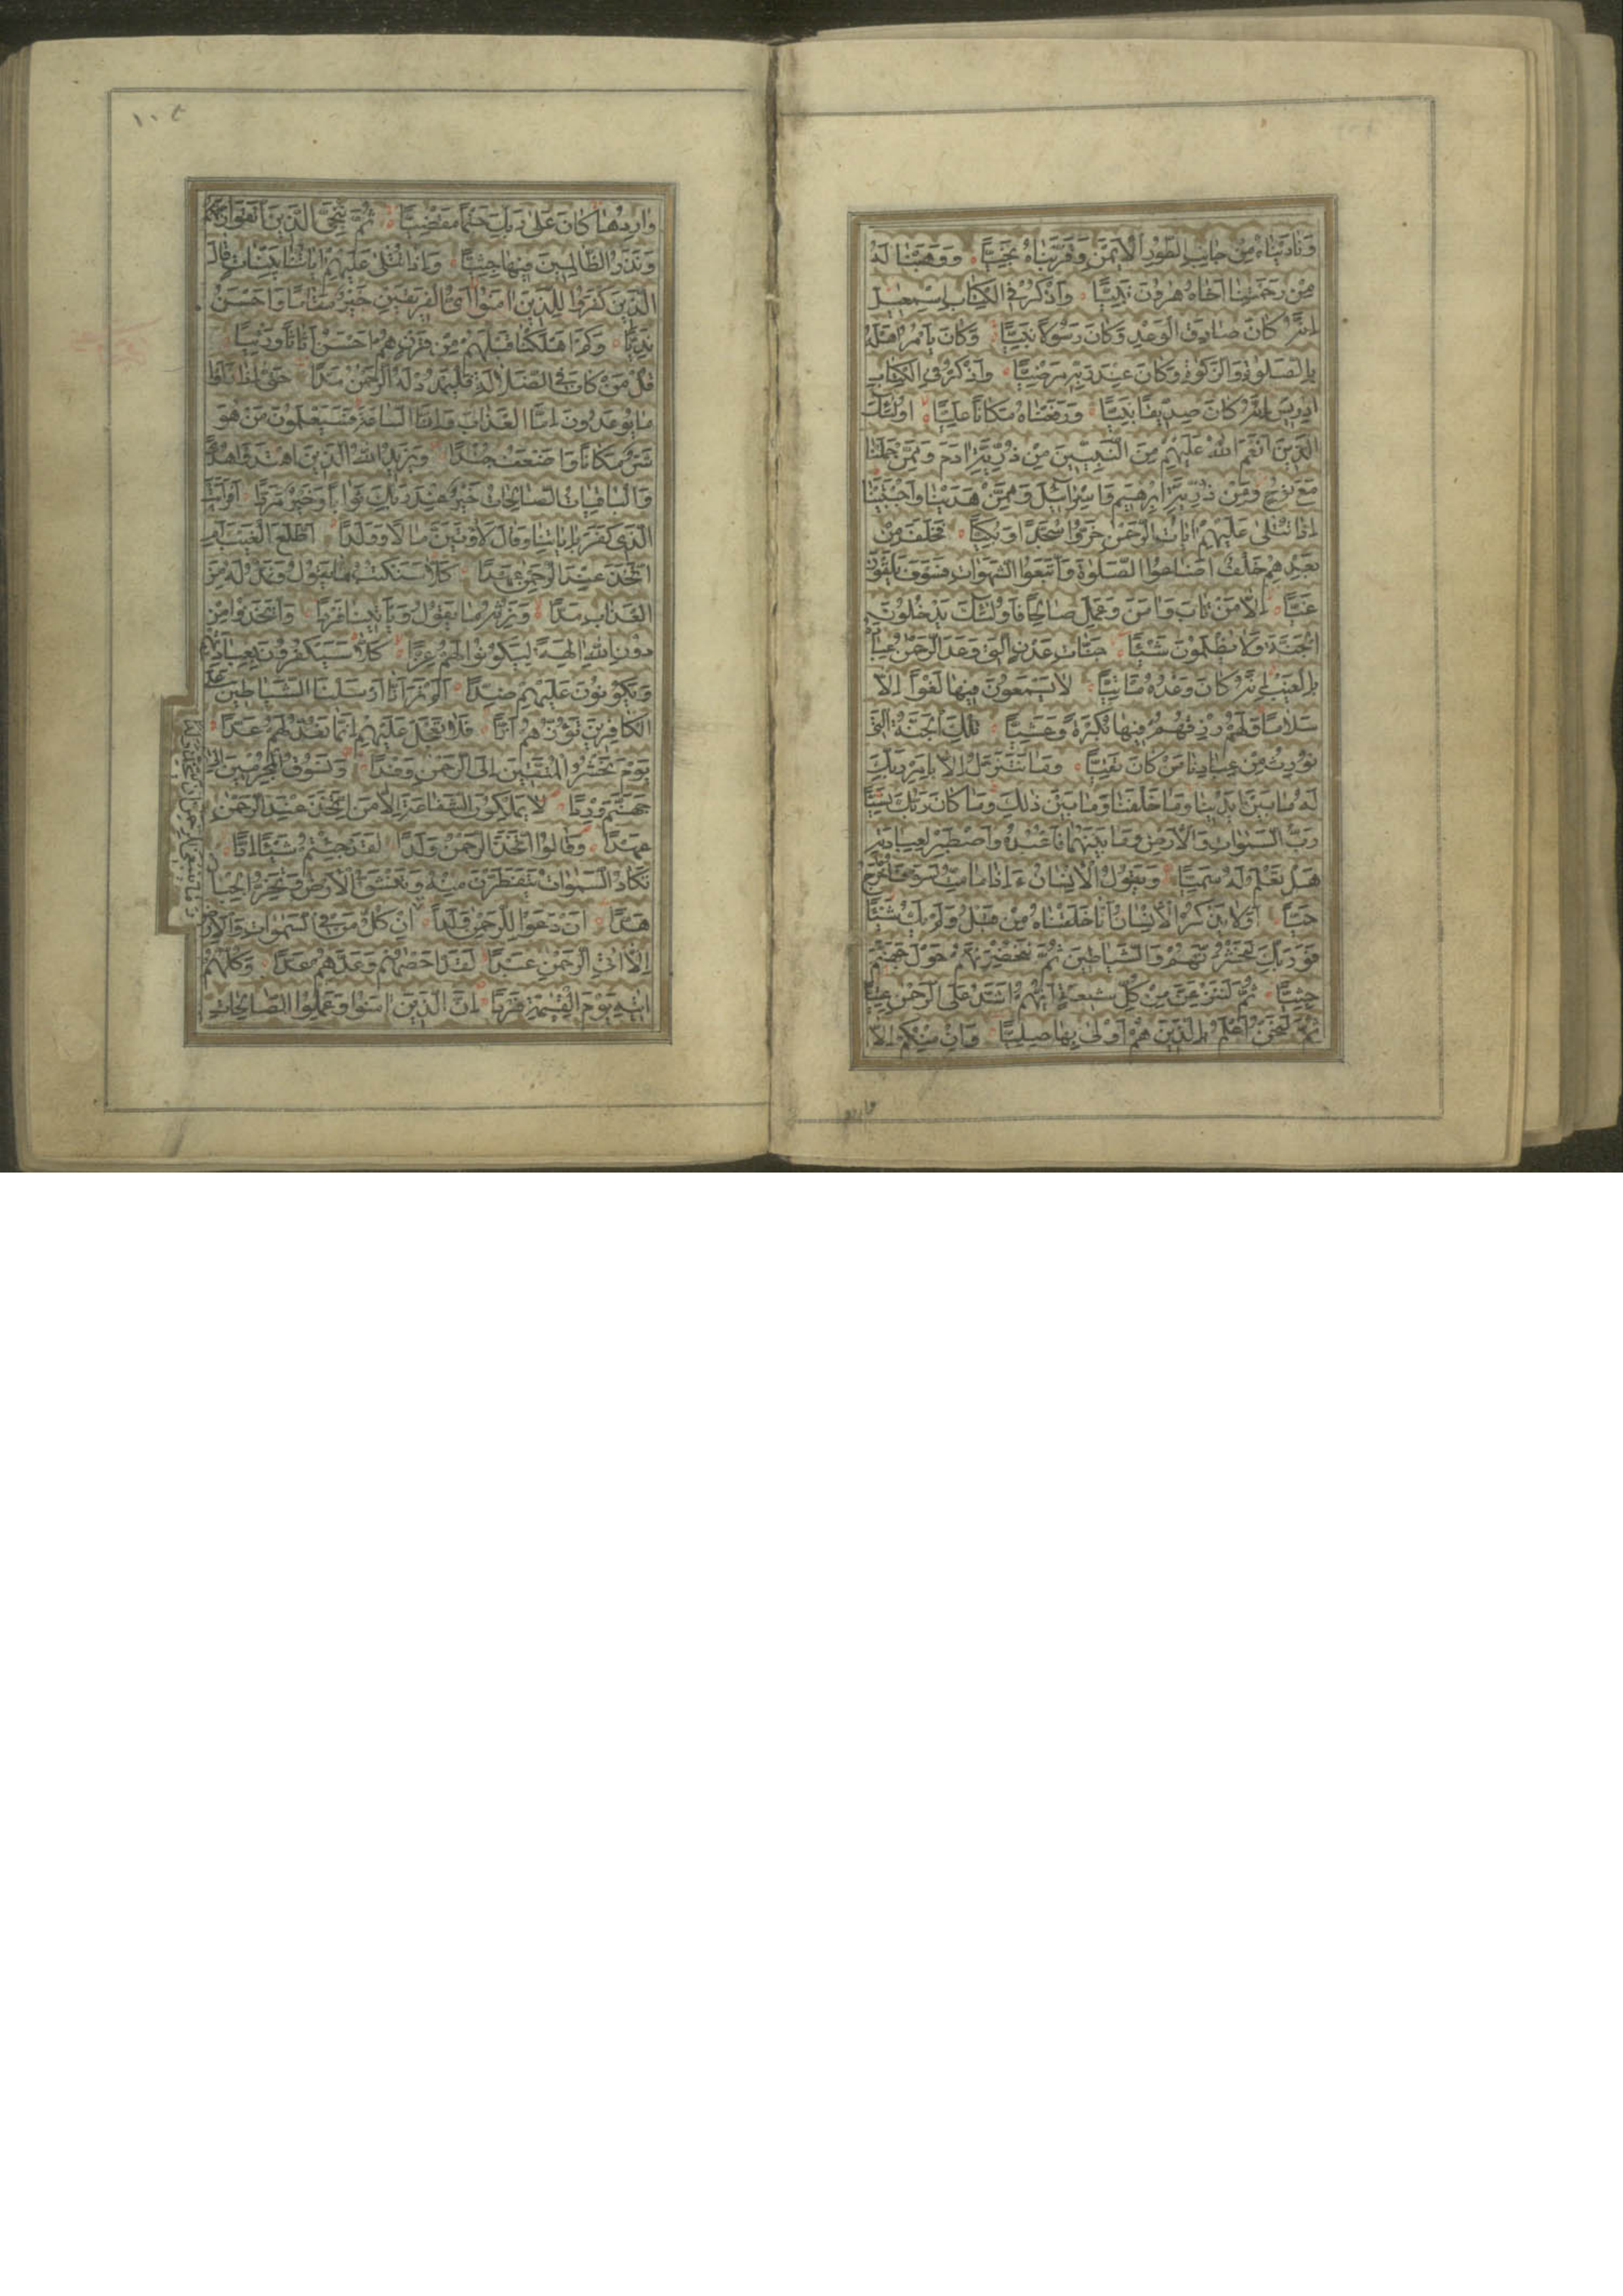 وَنَادَيْنَاهُ مِنْ جَانِبِ الطُّورِ الْأَيْمَنِ وَقَرَّبْنَاهُ نَجِيًّا وَوَهَبْنَا لَهُ
مِنْ رَحْمَتِنَا أَخَاهُ هٰرُونَ نَبِيًّا وَاذْكُرْ فِي الْكِتَابِ إِسْمٰعِيلَ
إِنَّهُ كَانَ صَادِقَ الْوَعْدِ وَكَانَ رَسُولًا نَبِيًّا وَكَانَ يَأْمُرُ أَهْلَهُ
بِالصَّلٰوةِ وَالزَّكٰوةِ وَكَانَ عِنْدَ رَبِّهِ مَرْضِيًّا وَاذْكُرْ فِي الْكِتَابِ
إِدْرِيسَ إِنَّهُ كَانَ صِدِّيقًا نَبِيًّا وَرَفَعْنَاهُ مَكَانًا عَلِيًّا أُولٰئِكَ
الَّذِينَ أَنْعَمَ اللهُ عَلَيْهِمْ مِنَ النَّبِيِّينَ مِنْ ذُرِّيَّةِ اٰدَمَ وَمِمَّنْ حَمَلْنَا
مَعَ نُوحٍ وَمِنْ ذُرِّيَّةِ إِبْرٰهِيمَ وَإِسْرَائِيلَ وَمِمَّنْ هَدَيْنَا وَاجْتَبَيْنَا
إِذَا تُتْلٰى عَلَيْهِمْ اٰيَاتُ الرَّحْمٰنِ خَرُّوا سُجَّدًا وَبُكِيًّا فَخَلَفَ مِنْ
بَعْدِهِمْ خَلْفٌ أَضَاعُوا الصَّلٰوةَ وَاتَّبَعُوا الشَّهَوَاتِ فَسَوْفَ يَلْقَوْنَ
غَيًّا إِلَّا مَنْ تَابَ وَاٰمَنَ وَعَمِلَ صَالِحًا فَأُولٰئِكَ يَدْخُلُونَ
الْجَنَّةَ وَلَا يُظْلَمُونَ شَيْئًا جَنَّاتِ عَدْنٍ الَّتِي وَعَدَ الرَّحْمٰنُ عِبَادَهُ
بِالْغَيْبِ إِنَّهُ كَانَ وَعْدُهُ مَأْتِيًّا لَا يَسْمَعُونَ فِيهَا لَغْوًا إِلَّا
سَلَامًا وَلَهُمْ رِزْقُهُمْ فِيهَا بُكْرَةً وَعَشِيًّا تِلْكَ الْجَنَّةُ الَّتِي
نُورِثُ مِنْ عِبَادِنَا مَنْ كَانَ تَقِيًّا وَمَا نَتَنَزَّلُ إِلَّا بِأَمْرِ رَبِّكَ
لَهُ مَا بَيْنَ أَيْدِينَا وَمَا خَلْفَنَا وَمَا بَيْنَ ذٰلِكَ وَمَا كَانَ رَبُّكَ نَسِيًّا
رَبُّ السَّمٰوَاتِ وَالْأَرْضِ وَمَا بَيْنَهُمَا فَاعْبُدْهُ وَاصْطَبِرْ لِعِبَادَتِهِ
هَلْ تَعْلَمُ لَهُ سَمِيًّا وَيَقُولُ الْإِنْسَانُ ءَإِذَا مَا مِتُّ لَسَوْفَ أُخْرَجُ
حَيًّا أَوَلَا يَذْكُرُ الْإِنْسَانُ أَنَّا خَلَقْنَاهُ مِنْ قَبْلُ وَلَمْ يَكُ شَيْئًا
فَوَرَبِّكَ لَنَحْشُرَنَّهُمْ وَالشَّيَاطِينَ ثُمَّ لَنُحْضِرَنَّهُمْ حَوْلَ جَهَنَّمَ
جِثِيًّا ثُمَّ لَنَنْزِعَنَّ مِنْ كُلِّ شِيعَةٍ أَيُّهُمْ أَشَدُّ عَلَى الرَّحْمٰنِ عِتِيًّا
ثُمَّ لَنَحْنُ أَعْلَمُ بِالَّذِينَ هُمْ أَوْلٰى بِهَا صِلِيًّا وَإِنْ مِنْكُمْ إِلَّا
واردها
وَارِدُهَا كَانَ عَلٰى رَبِّكَ حَتْمًا مَقْضِيًّا ثُمَّ نُنَجِّي الَّذِينَ اتَّقَوْا
وَنَذَرُ الظَّالِمِينَ فِيهَا جِثِيًّا وَإِذَا تُتْلٰى عَلَيْهِمْ اٰيَاتُنَا بَيِّنَاتٍ قَالَ
الَّذِينَ كَفَرُوا لِلَّذِينَ اٰمَنُوا أَيُّ الْفَرِيقَيْنِ خَيْرٌ مَقَامًا وَأَحْسَنُ
نَدِيًّا وَكَمْ أَهْلَكْنَا قَبْلَهُمْ مِنْ قَرْنٍ هُمْ أَحْسَنُ أَثَاثًا وَرِئْيًا
قُلْ مَنْ كَانَ فِي الضَّلَالَةِ فَلْيَمْدُدْ لَهُ الرَّحْمٰنُ مَدًّا حَتّٰى إِذَا رَأَوْا
مَا يُوعَدُونَ إِمَّا الْعَذَابَ وَإِمَّا السَّاعَةَ فَسَيَعْلَمُونَ مَنْ هُوَ
شَرٌّ مَكَانًا وَأَضْعَفُ جُنْدًا وَيَزِيدُ اللهُ الَّذِينَ اهْتَدَوْا هُدًى
وَالْبَاقِيَاتُ الصَّالِحَاتُ خَيْرٌ عِنْدَ رَبِّكَ ثَوَابًا وَخَيْرٌ مَرَدًّا أَفَرَأَيْتَ
الَّذِي كَفَرَ بِاٰيَاتِنَا وَقَالَ لَأُوتَيَنَّ مَالًا وَوَلَدًا أَطَّلَعَ الْغَيْبَ أَمِ
اتَّخَذَ عِنْدَ الرَّحْمٰنِ عَهْدًا كَلَّا سَنَكْتُبُ مَا يَقُولُ وَنَمُدُّ لَهُ مِنَ
الْعَذَابِ مَدًّا وَنَرِثُهُ مَا يَقُولُ وَيَأْتِينَا فَرْدًا وَاتَّخَذُوا مِنْ
دُونِ اللهِ اٰلِهَةً لِيَكُونُوا لَهُمْ عِزًّا كَلَّا سَيَكْفُرُونَ بِعِبَادَتِهِمْ
وَيَكُونُونَ عَلَيْهِمْ ضِدًّا أَلَمْ تَرَ أَنَّا أَرْسَلْنَا الشَّيَاطِينَ عَلَى
الْكَافِرِينَ تَؤُزُّهُمْ أَزًّا فَلَا تَعْجَلْ عَلَيْهِمْ إِنَّمَا نَعُدُّ لَهُمْ عَدًّا
يَوْمَ نَحْشُرُ الْمُتَّقِينَ إِلَى الرَّحْمٰنِ وَفْدًا وَنَسُوقُ الْمُجْرِمِينَ إِلٰى
جَهَنَّمَ وِرْدًا لَا يَمْلِكُونَ الشَّفَاعَةَ إِلَّا مَنِ اتَّخَذَ عِنْدَ الرَّحْمٰنِ
عَهْدًا وَقَالُوا اتَّخَذَ الرَّحْمٰنُ وَلَدًا لَقَدْ جِئْتُمْ شَيْئًا إِدًّا
تَكَادُ السَّمٰوَاتُ يَتَفَطَّرْنَ مِنْهُ وَتَنْشَقُّ الْأَرْضُ وَتَخِرُّ الْجِبَالُ
هَدًّا أَنْ دَعَوْا لِلرَّحْمٰنِ وَلَدًا إِنْ كُلُّ مَنْ فِي السَّمٰوَاتِ وَالْأَرْضِ
إِلَّا اٰتِي الرَّحْمٰنِ عَبْدًا لَقَدْ أَحْصٰهُمْ وَعَدَّهُمْ عَدًّا وَكُلُّهُمْ
اٰتِيهِ يَوْمَ الْقِيٰمَةِ فَرْدًا إِنَّ الَّذِينَ اٰمَنُوا وَعَمِلُوا الصَّالِحَاتِ
وَمَا يَنْبَغِي لِلرَّحْمٰنِ أَنْ يَتَّخِذَ وَلَدًا